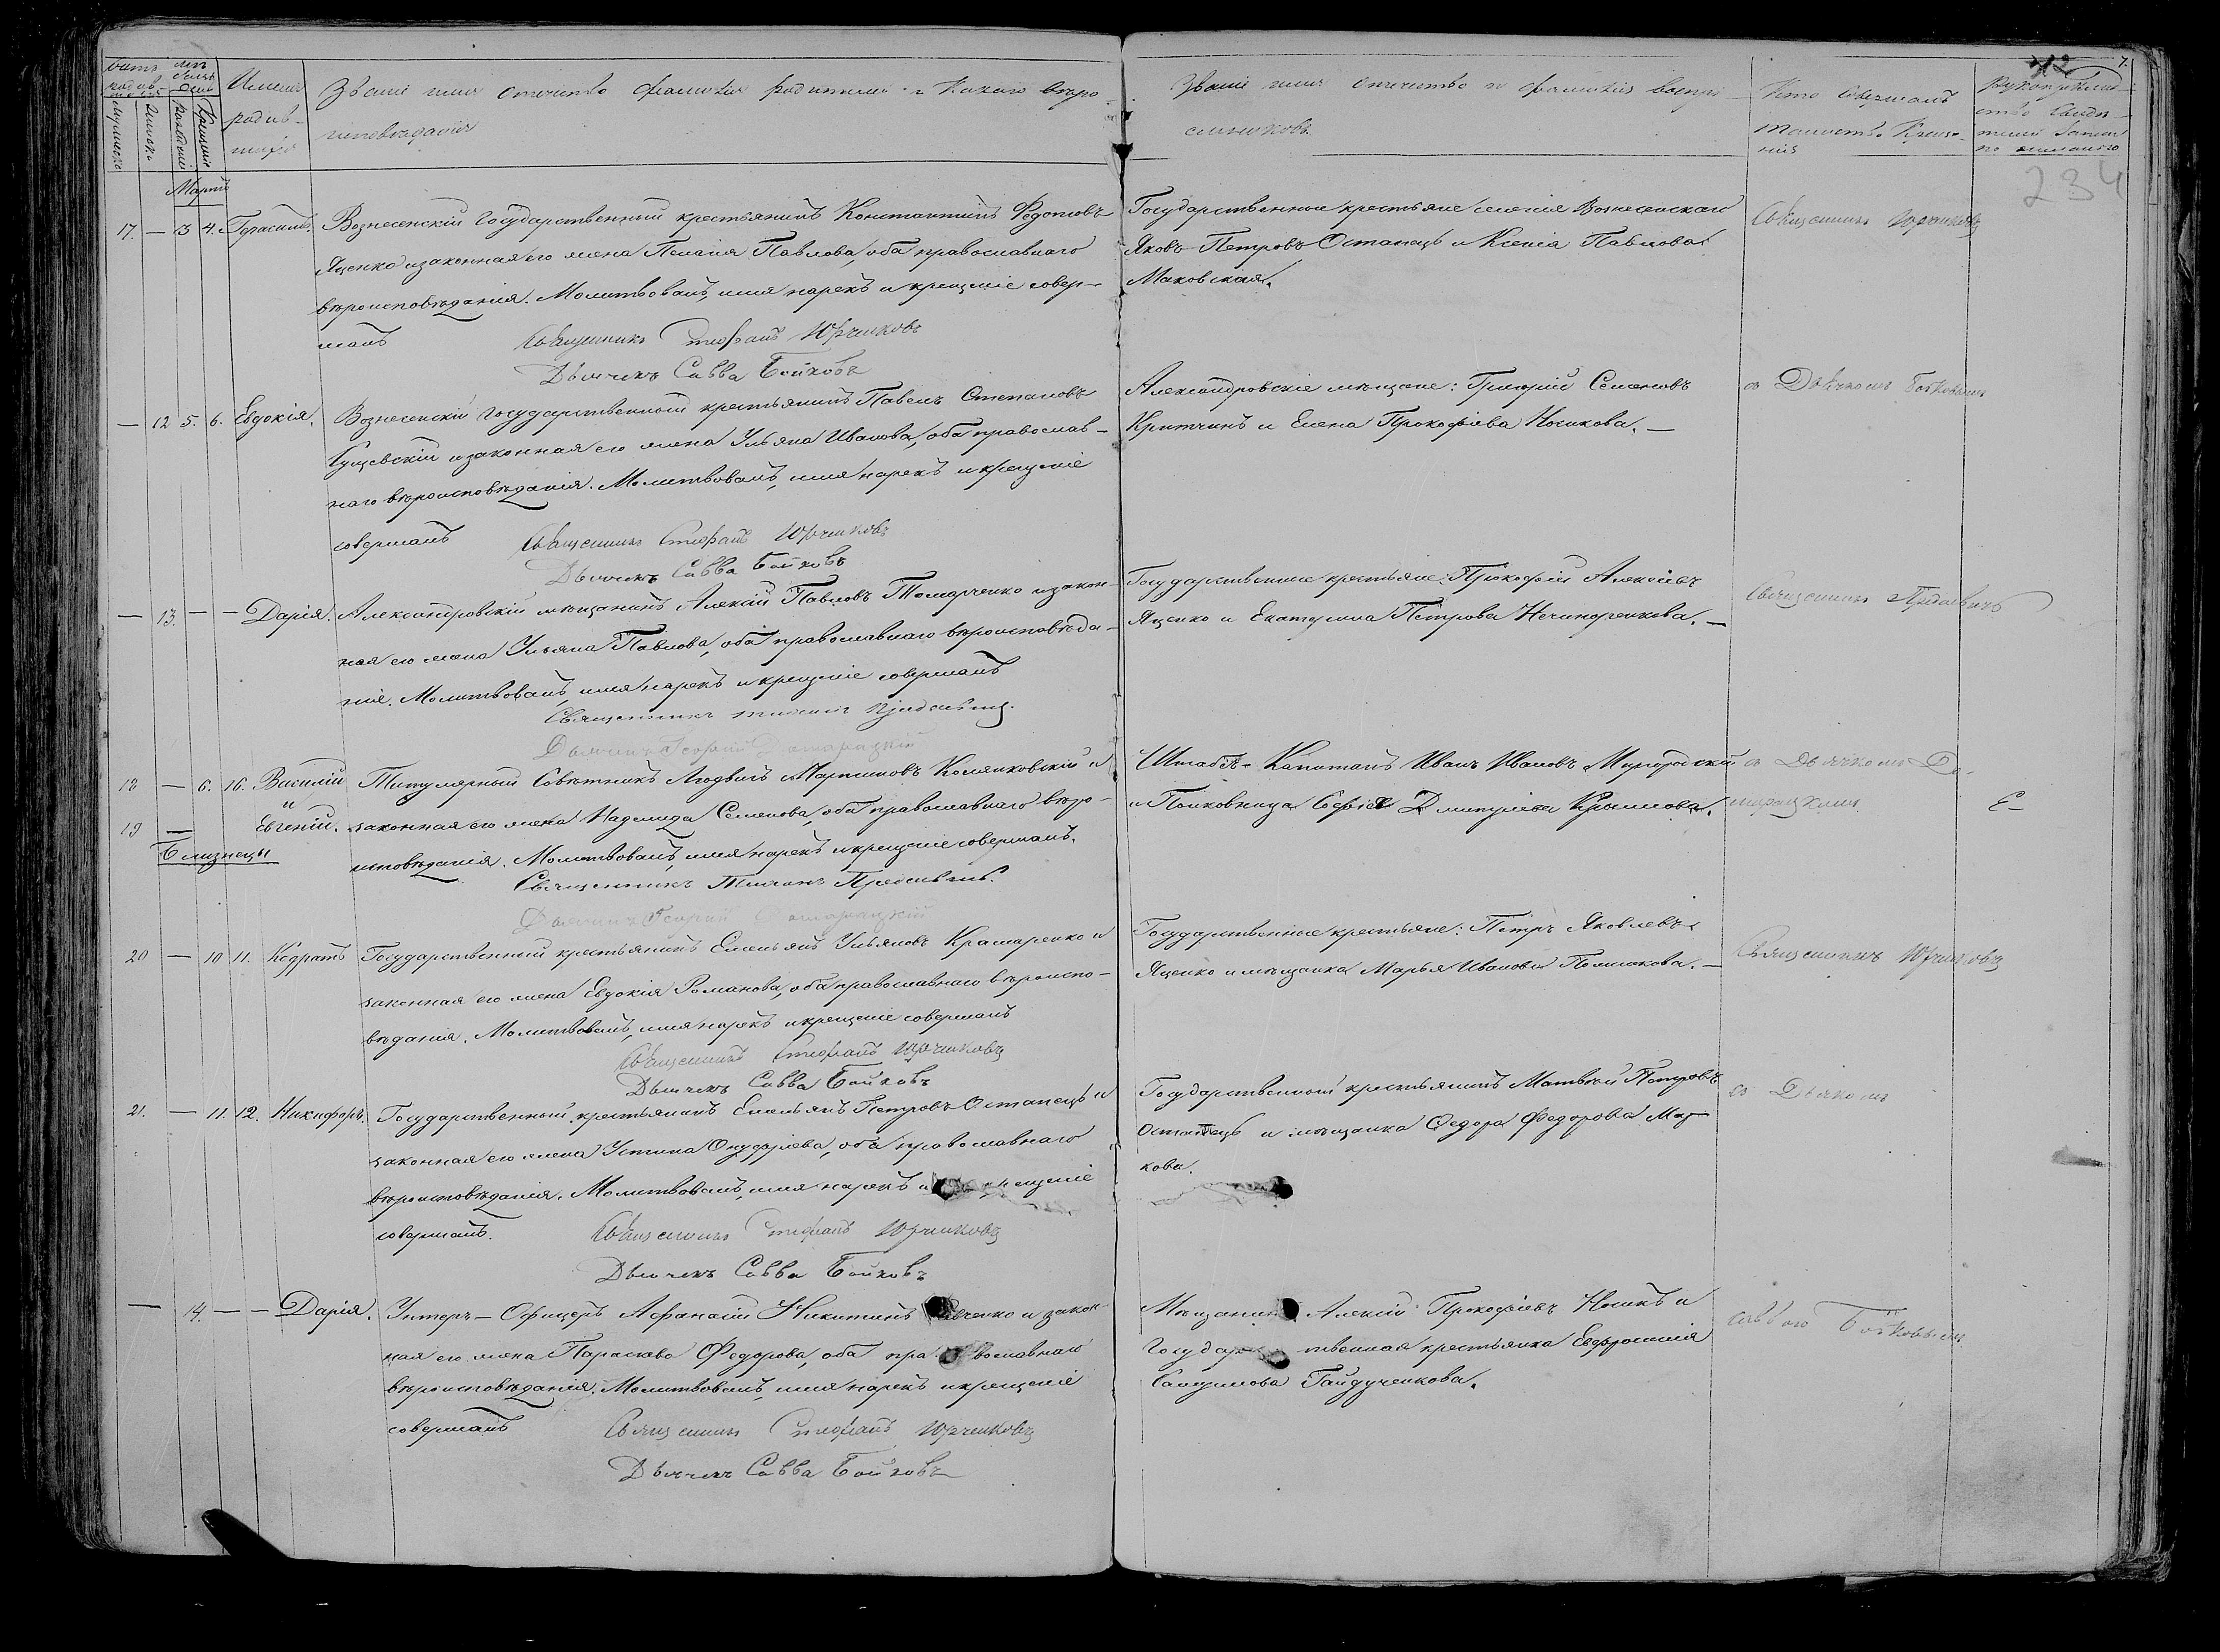 Имена
родив-
шихся
Званіе имя отчество фамилія родителей и какого вѣро-
исповѣданія
Званіе имя отчество и фамилія воспрі-
емниковъ.
Кто совершалъ
таинство Креще-
нія
Рукоприклад-
ство свидѣ-
телей записи
по желанію
7.
234
Мартъ
17. — 3 4. Герасимъ. Вознесенскій государственный крестьянинъ Константинъ Федотовъ
Яценко и законная его жена Пелагія Павлова, оба православнаго
вѣроисповѣданія. Молитвовалъ, имя нарекъ и крещеніе совер-
шалъ Священникъ Стефанъ Юрченковъ
Дьячекъ Савва Бойковъ
Государственные крестьяне селенія Вознесенскаго
Яковъ Петровъ Остапецъ и Ксенія Павлова
Маковская.
Священникъ Юрченковъ
— 12 5. 6. Евдокія. Вознесенскій государственный крестьянинъ Павелъ Степановъ
Кущевскій и законная его жена Ульяна Иванова, оба православ-
наго вѣроисповѣданія. Молитвовалъ, имя нарекъ и крещеніе
совершалъ Священникъ Стефанъ Юрченковъ
Дьячекъ Савва Бойковъ
Александровскіе мѣщане: Григорій Семеновъ
и Елена Прокофіева Носикова. —
съ Дьячкомъ Бойковымъ
— 13. — — Дарія. Александровскій мѣщанинъ Алексій Павловъ и закон-
ная его жена Ульяна Павлова, оба православнаго вѣроисповѣда-
нія. Молитвовалъ, имя нарекъ и крещеніе совершалъ
Священникъ
Дьячекъ Георгій Домарацкій
Государственные крестьяне: Прокофій Алексіевъ
Яценко и Екатерина Петрова Нечипоренкова. —
Священникъ
18 — 6. 16. Василій Титулярный Совѣтникъ Людвигъ Мартиновъ и
и
19 — Евгеній. законная его жена Надежда Семенова, оба православнаго вѣро-
Близнецы
исповѣданія. Молитвовалъ, имя нарекъ и крещеніе совершалъ.
Священникъ
Дьячекъ Георгій Домарацкій
Штабсъ-Капитанъ Иванъ Ивановъ Миргородскій
и Полковница Софія Дмитріева Крылова.
съ Дьячкомъ До-
марацкимъ
20 — 10 11. Кодратъ Государственный крестьянинъ Емельянъ Ульяновъ Крамаренко и
законная его жена Евдокія Романова, оба православнаго вѣроиспо-
вѣданія. Молитвовалъ, имя нарекъ и крещеніе совершалъ
Священникъ Стефанъ Юрченковъ
Дьячекъ Савва Бойковъ
Государственные крестьяне: Петръ Яковлевъ
Яценко и мѣщанка Марья Иванова Полякова. —
Священникъ Юрченковъ
21. — 11. 12. Никифоръ. Государственный крестьянинъ Емельянъ Петровъ Остапецъ и
законная его жена Устина Онуфріева, оба православнаго
вѣроисповѣданія. Молитвовалъ, имя нарекъ и крещеніе
совершалъ. Священникъ Стефанъ Юрченковъ
Дьячекъ Савва Бойковъ
Государственный крестьянинъ Матвѣй Петровъ
Остапецъ и мѣщанка Федора Федорова
кова.
съ Дьячкомъ
— 14. — — Дарія. Унтеръ-Офицеръ Афанасій Никитинъ и закон-
ная его жена Параскева Федорова, оба православнаго
вѣроисповѣданія. Молитвовалъ, имя нарекъ и крещеніе
совершалъ Священникъ Стефанъ Юрченковъ
Дьячекъ Савва Бойковъ
Мѣщанинъ Алексій Прокофіевъ Носикъ и
Государственная крестьянка Евфросинія
Гайдученкова.
Саввою Бойковымъ